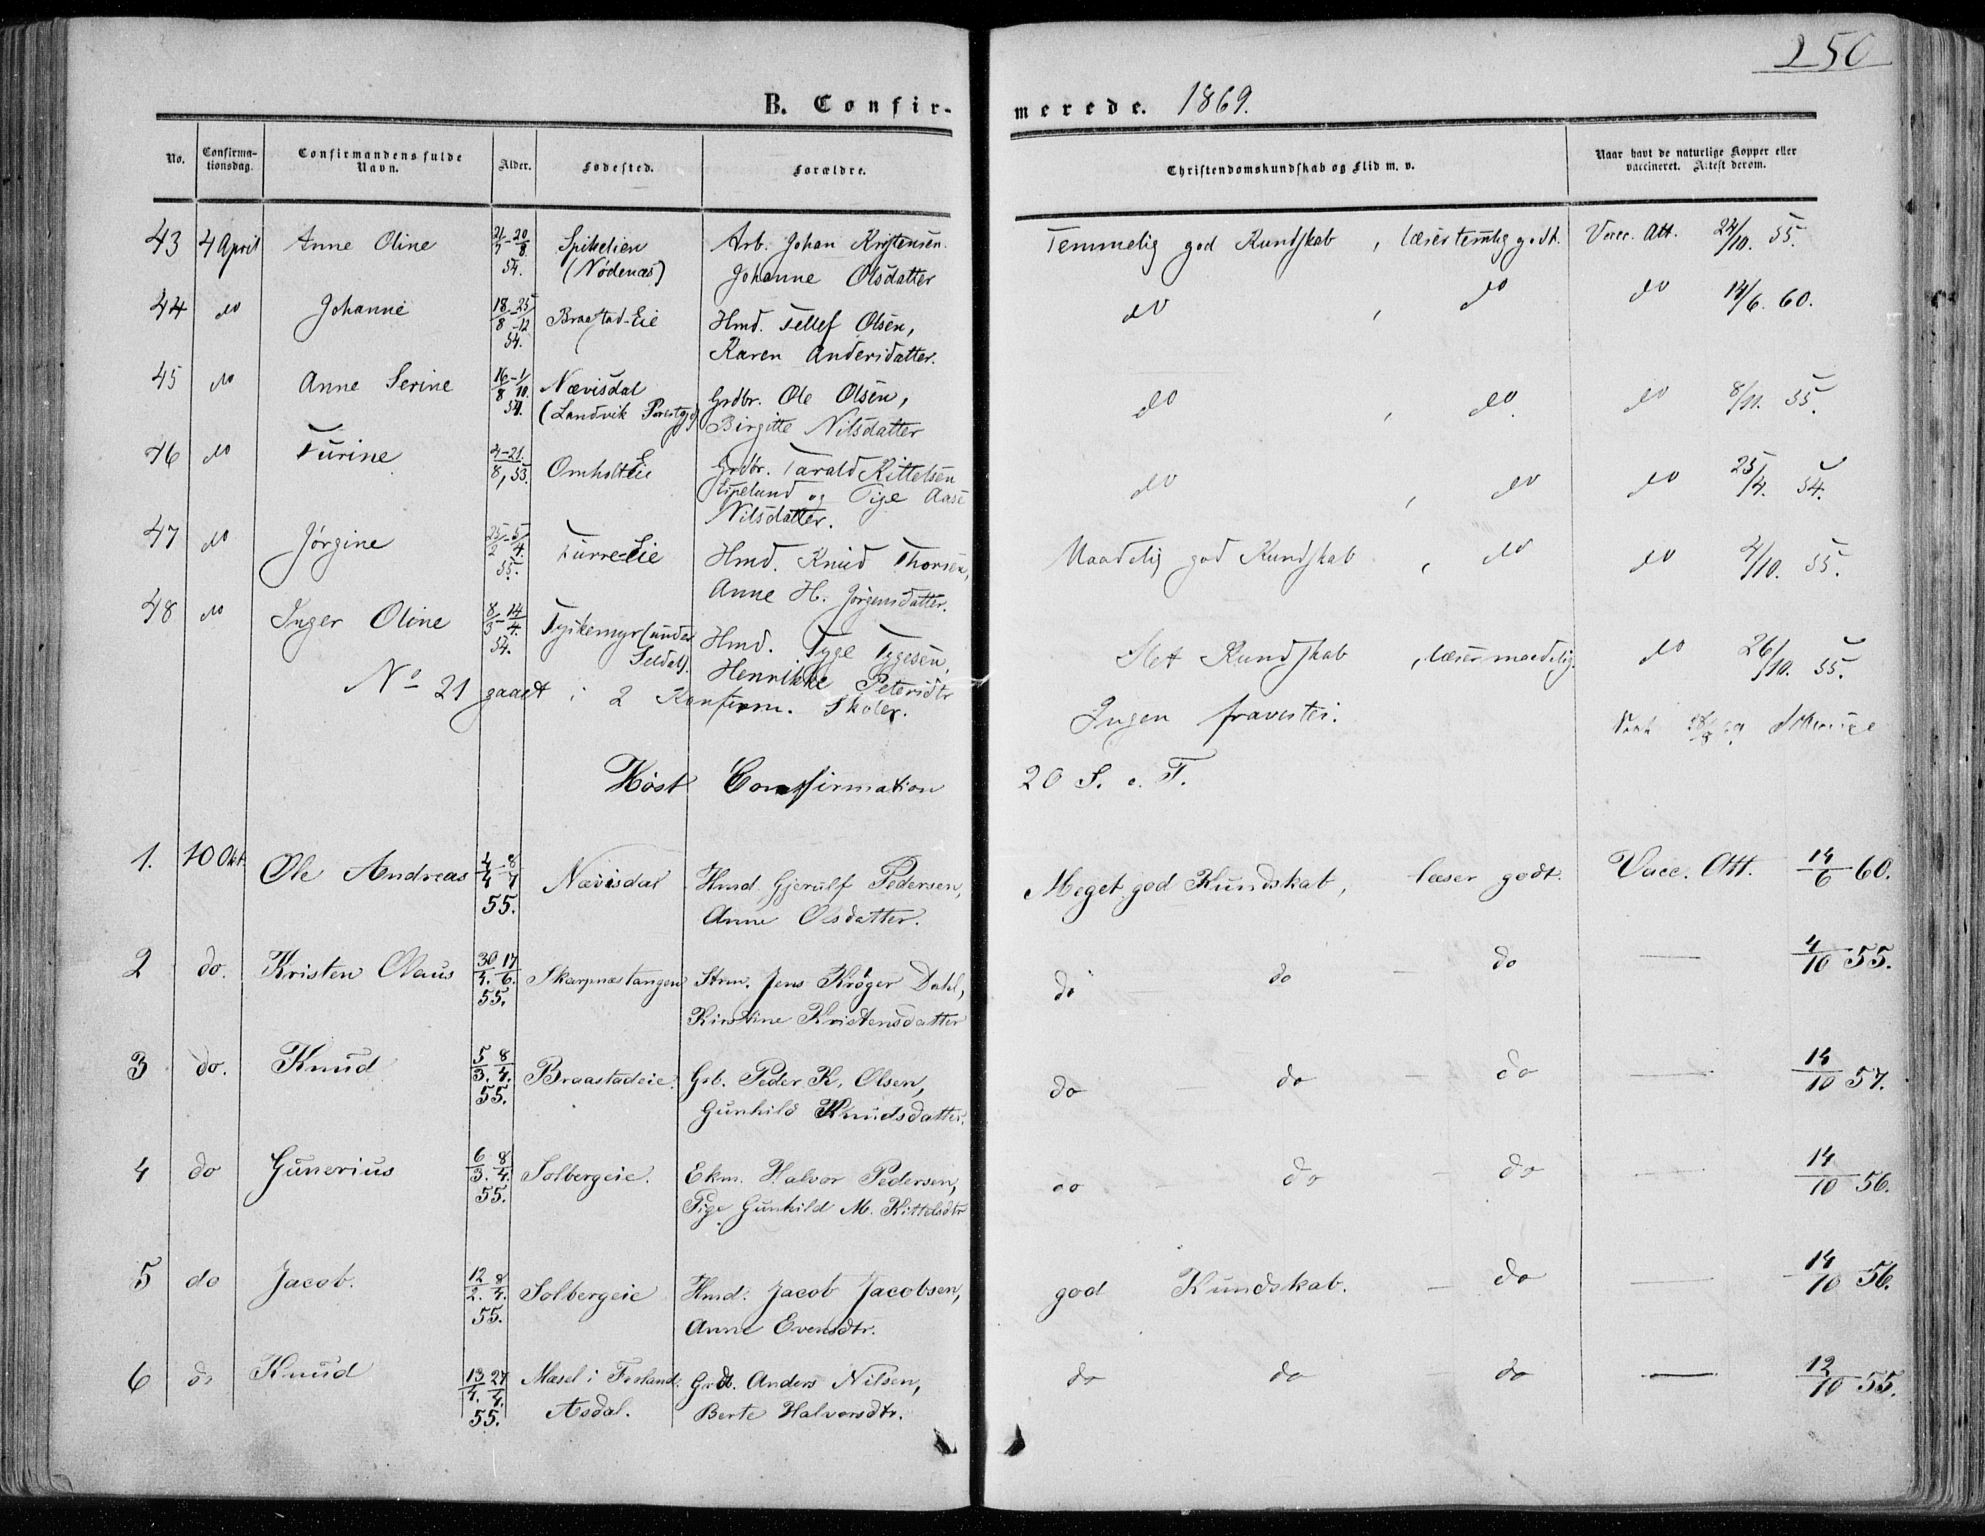 250
B. Confirmerede. 1869.
No. Confirmationsdag. Confirmandens fulde Navn. Alder. Fødested. Forældre. Christendomskundskab og Flid m. v. Naar havt de naturlige Kopper eller vaccineret. Attest derom.
43 4 April Anne Oline 21/7 - 20/8. 54. Spikelien Arb. Johan Kristensen. Temmelig god Kundskab, læser temlig godt. Vacc. Att. 22/10. 55.
(Nødenæs) Johanne Olsdatter
44 do Johanne 18/8 - 25/12 54. Braastad-Eie Hmd. Tellef Olsen, do , do do 14/6. 60.
Karen Andersdatter.
45 do Anne Serine 16/8 - 1/10. 54. Nævisdal Grdbr. Ole Olsen, do , do do 8/11. 55.
(Landvik Præstgj) Birgitte Nilsdatter
46 do Turine 4 - 21/8, 53. Omholt Eie Grdbr. Tarald Kittelsen do , do do 25/4. 54.
og Pige Aase
Nilsdatter.
47 do Jørgine 25/2 - 5/4. 55. Furre-Eie Hmd. Knud Thorsen, Maadelig god Kundskab , do do 4/10. 55.
Anne H. Jørgensdatter.
48 do Inger Oline 8/3 - 14/4. 54. Tyskemyr (under Hmd. Tyge Tygesen, Slet Kundskab , læser maadelig do 26/10. 55.
Seldal). Henrikke Petersdtr
No 21 gaaet i 2 Konfirm. Skoler. Ingen fraværtes.
Høst Confirmation 20 S. e. T.
1. 10 Okt. Ole Andreas 4/4 8/7 55. Nævisdal Hmd. Gjerulf Pedersen, Meget god Kundskab, læser godt. Vacc. Att. 14/6 60.
Anne Olsdatter.
2 do. Kristen Claus 30/4. 17/6. 55. Skarpnæstangen Strm. Jens Krøger Dahl, do do - do — 4/10 55.
Kirstine Kristensdatter
3 do. Knud 5/3. 8/4. 55. Braastadeie. Grb. Peder K. Olsen, do do - do — 14/10 57.
Gunhild Knudsdatter.
4 do Gunerius 6/3. 8/4. 55. Solbergeie. Ekm. Halvor Pedersen, do - do - do — 14/10 56.
Pige Gunhild M. Kittelsdtr
5 do Jacob. 12/2. 8/4. 55. Solbergeie Hmd. Jacob Jacobsen, god Kundskab. - do — 14/10 56.
Anne Evensdtr.
6 do Knud 13/4. 27/4. 55. Mæsel i Froland. Grdb. Anders Nilsen, do do do — 12/10 55.
Asdal. Berte Halvorsdtr.